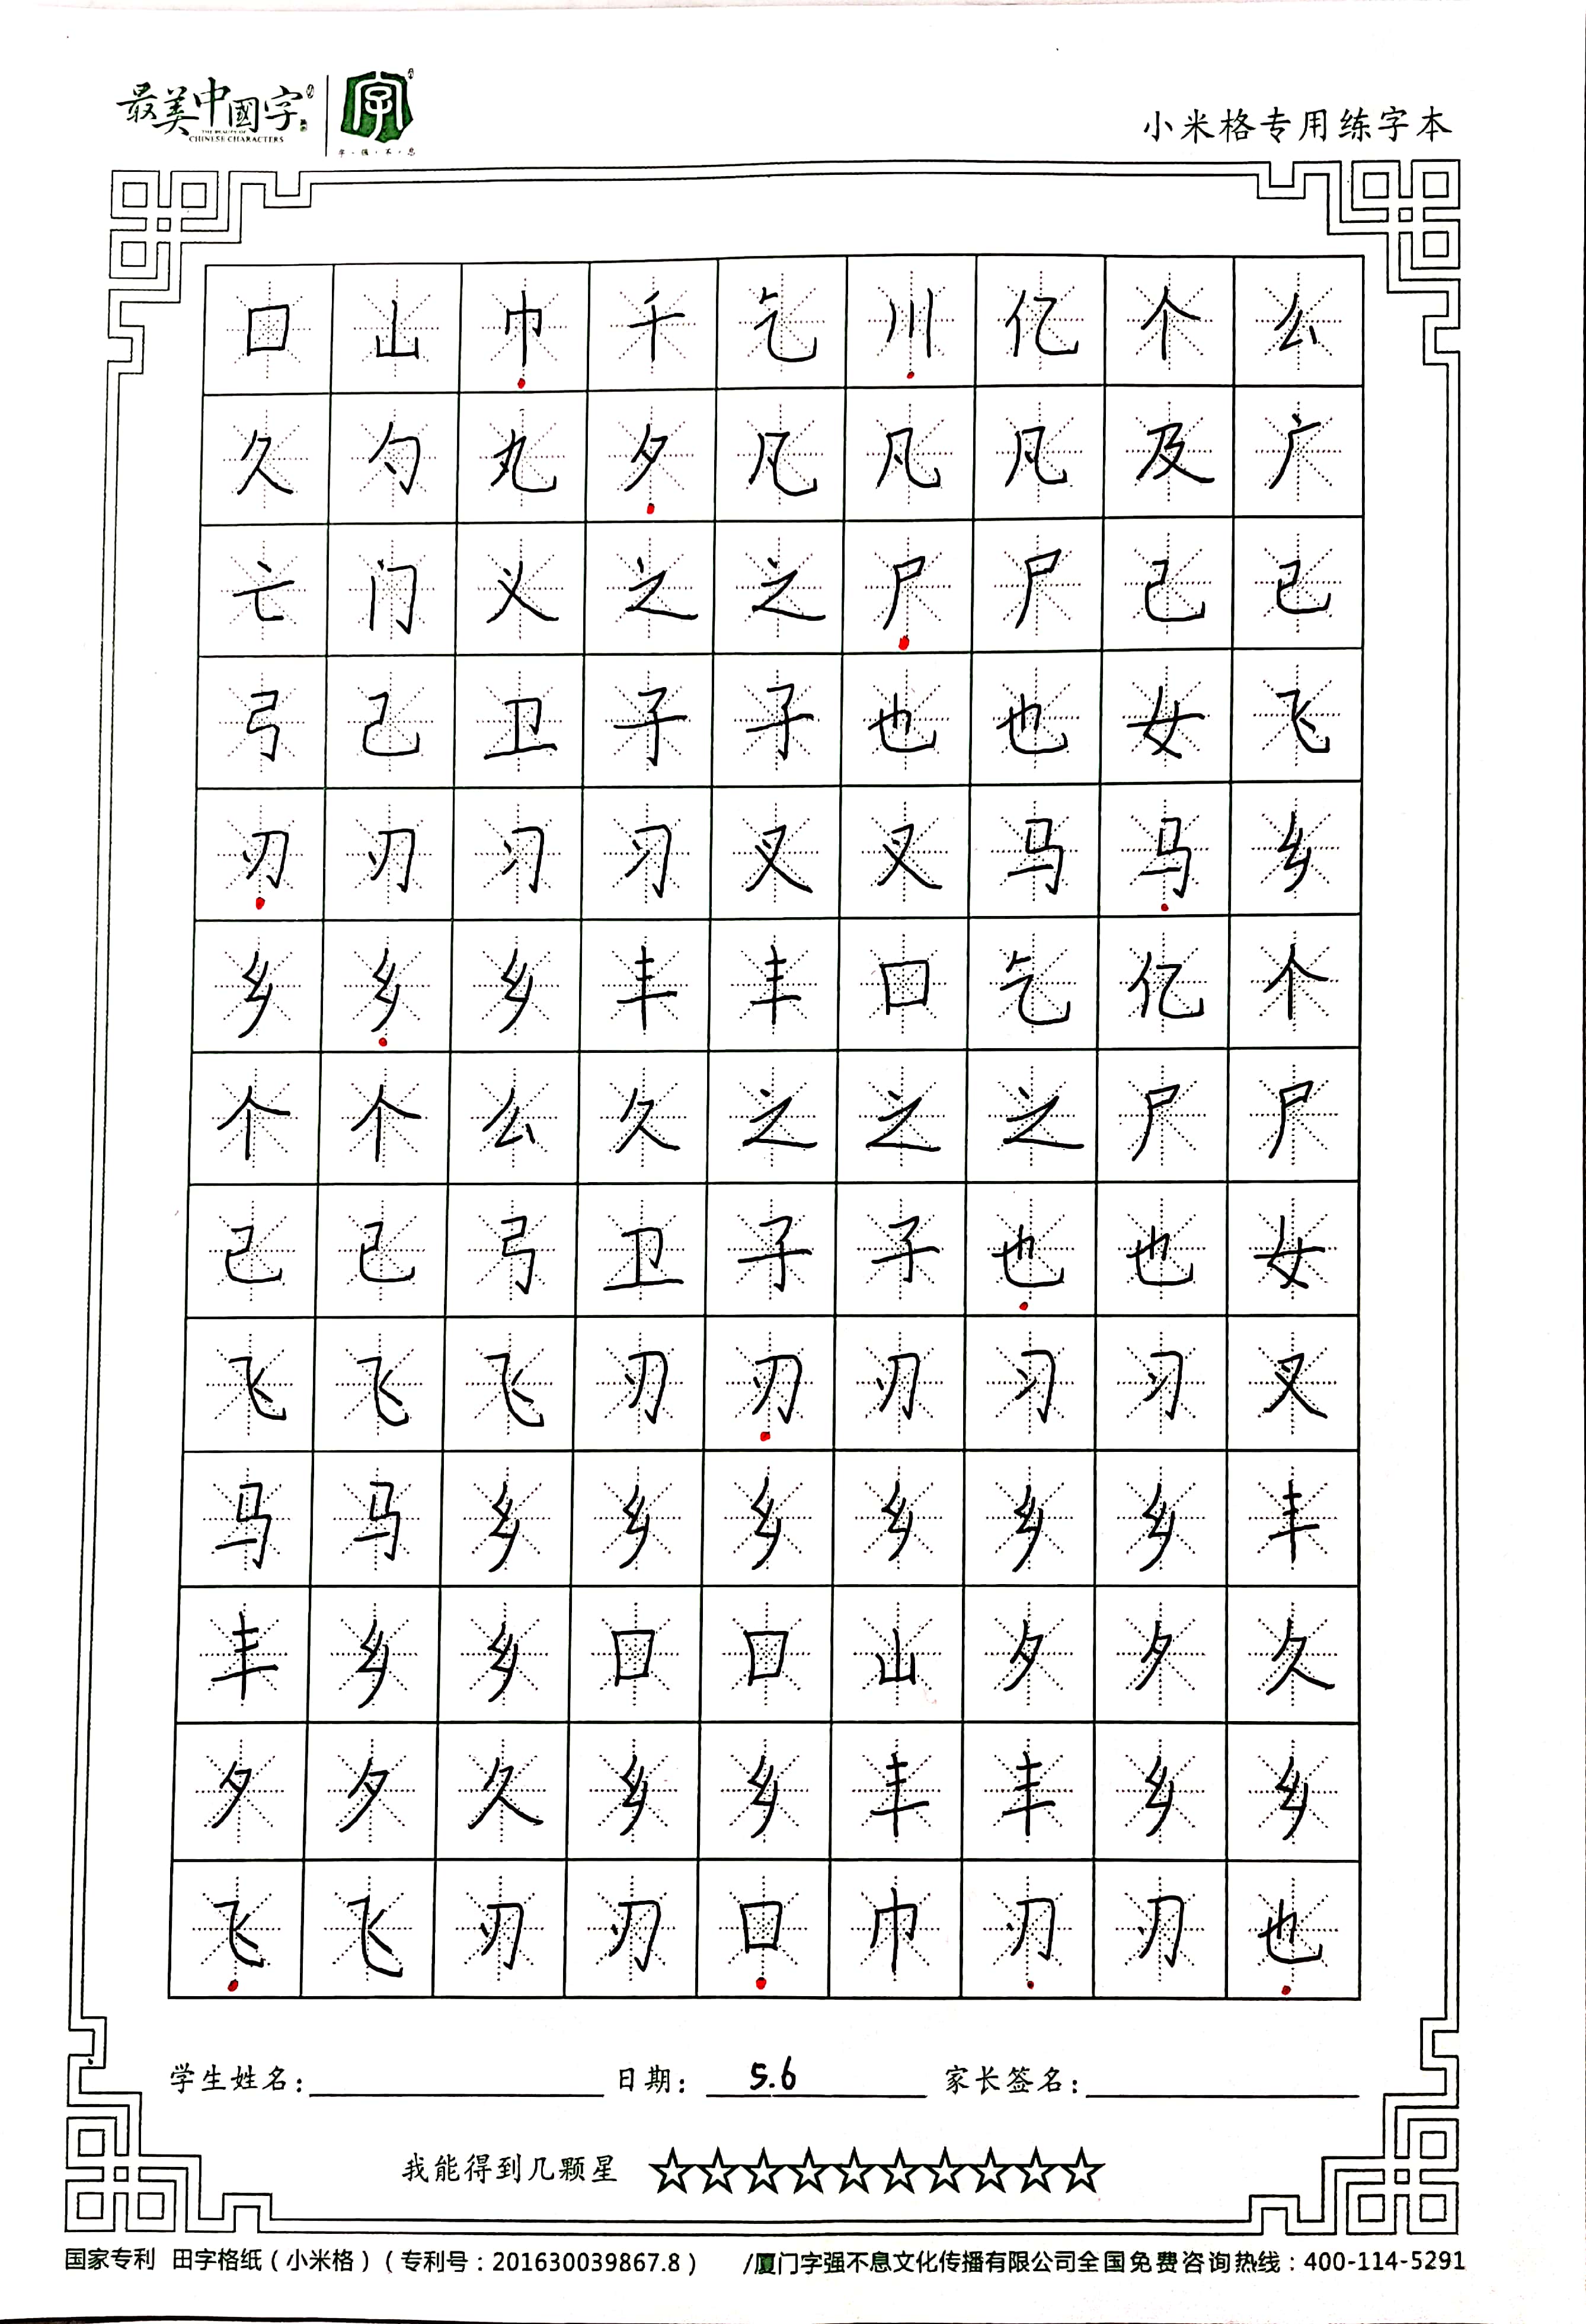 最美中國字
THE BEAUTY OF
CHINESE CHARACTERS
字
字·强·不·息
小米格专用练字本
口 山 巾 千 乞 川 亿 个 么
久 勺 丸 夕 凡 凡 凡 及 广
亡 门 义 之 之 尸 尸 己 已
弓 己 卫 子 子 也 也 女 飞
刃 刃 习 习 叉 叉 马 马 乡
乡 乡 乡 丰 丰 口 乞 亿 个
个 个 么 久 之 之 之 尸 尸
己 已 弓 卫 子 子 也 也 女
飞 飞 飞 刃 刃 刃 习 习 叉
马 马 乡 乡 乡 乡 乡 乡 丰
丰 乡 乡 口 口 山 夕 夕 久
夕 夕 久 乡 乡 丰 丰 乡 乡
飞 飞 刃 刃 口 巾 刃 刃 也
学生姓名: 日期: 5.6 家长签名:
我能得到几颗星 ☆☆☆☆☆☆☆☆☆☆
国家专利 田字格纸(小米格)(专利号:201630039867.8) /厦门字强不息文化传播有限公司全国免费咨询热线:400-114-5291